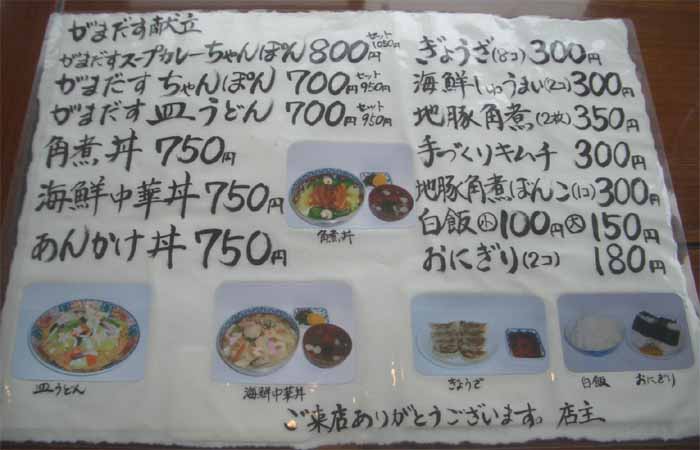 がまだす献立
がまだすスープカレーちゃんぽん 800円 セット1050円
がまだす ちゃんぽん 700円 セット950円
がまだす 皿うどん 700円 セット950円
角煮丼 750円
海鮮中華丼 750円
あんかけ丼 750円
ぎょうざ(8コ) 300円
海鮮しゅうまい(2コ) 300円
地豚角煮(2枚) 350円
手づくりキムチ 300円
地豚角煮ぽんこ(1コ) 300円
白飯 小 100円 大 150円
おにぎり(2コ) 180円
角煮丼
皿うどん
海鮮中華丼
ぎょうざ
白飯
おにぎり
ご来店ありがとうございます。店主